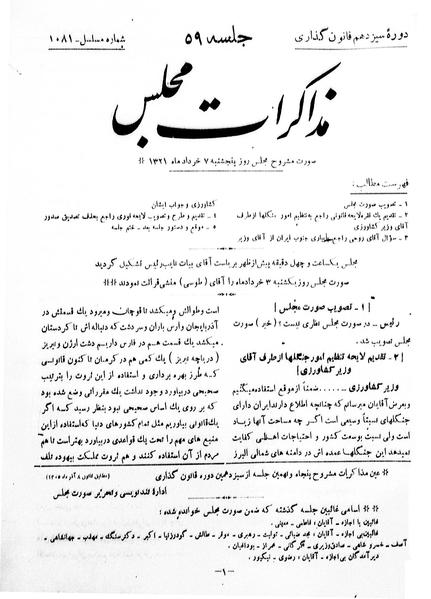 دورهٔ سیزدهم قانون گذاری
جلسه ۵۹
شماره مسلسل - ۱۰۸۱
مذاکرات مجلس
صورت مشروح مجلس روز پنجشنبه ۷ خرداد ماه ۱۳۲۱
فهرست مطالب:
۱ - تصویب صورت مجلس
۲ - تقدیم یک فقره لایحه قانونی راجع به تنظیم امور جنگلها از طرف
آقای وزیر کشاورزی
۳ - سؤال آقای روحی راجع به آبیاری جنوب ایران از آقای وزیر
کشاورزی و جواب ایشان
۴ - تقدیم و طرح و تصویب لایحه فوری راجع بحذف تصدیق صدور
۵ - موقع و دستور جلسه بعد - ختم جلسه
مجلس یکساعت و چهل دقیقه پیش از ظهر بریاست آقای بیات نایب رئیس تشکیل گردید
صورت مجلس روز یکشنبه ۳ خرداد ماه را آقای (طوسی) منشی قرائت نمودند
[۱ - تصویب صورت مجلس]
رئیس - در صورت مجلس نظری نیست؟ (خیر) صورت
مجلس تصویب شد.
[۲ - تقدیم لایحه تنظیم امور جنگلها از طرف آقای
وزیر کشاورزی]
وزیر کشاورزی - ...... ضمناً از موقع استفاده میکنیم
و بعرض آقایان میرسانم که چنانچه اطلاع دارند ایران دارای
جنگلهای نسبتاً وسیعی است اگر چه مساحت آنها زیاد
است ولی نسبت بوسعت کشور و احتیاجات اهالی کفایت
نمیدهد این جنگلها عمده اش در دامنه های شمالی البرز
است و طوالش و میکشد تا قوچان و میرود یک قسمتش در
آذربایجان و ارس باران و سردشت که دنباله اش تا کردستان
میکشد. یک قسمت هم در فارس داریم دشت ارژن و نیریز
(دریاچه نیریز) یک کمی هم در کرمان تا کنون قانونی
که طرز بهره برداری و استفاده از این ثروت را بترتیب
صحیحی در بیاورد وجود نداشت یک مقرراتی وضع شده بود
که بر روی یک اساس صحیحی نبود بنظر رسید که اگر
یک قانونی بیاوریم مثل تمام کشورهای دنیا که استفاده از این
منبع های مهم را تحت یک قواعدی در بیاورد بهتر است تا هم
مردم از آن استفاده کنند و هم ثروت مملکت بیهوده تلف
عین مذاکرات مشروح پنجاه و نهمین جلسه از سیزدهمین دوره قانون گذاری
(مطابق قانون ۸ آذرماه ۱۳۰۵)
اداره تندنویسی و تحریر صورت مجلس
اسامی غائبین جلسه گذشته که ضمن صورت مجلس خوانده شده:
غائبین با اجازه - آقایان: فاطمی - معینی.
غائبین بی اجازه - آقایان: مجد ضیائی - تولیت - رهبری - موقر - طالش - گودرزنیا - اکبر - دکتر سنگ - مهذب - جهانشاهی -
آصف - خسرو شاهی - صادق وزیری - نمازی - همراز - بوداغیان.
دیر آمدگان بی اجازه - آقایان: رضوی - نیکپور.
- ۱ -